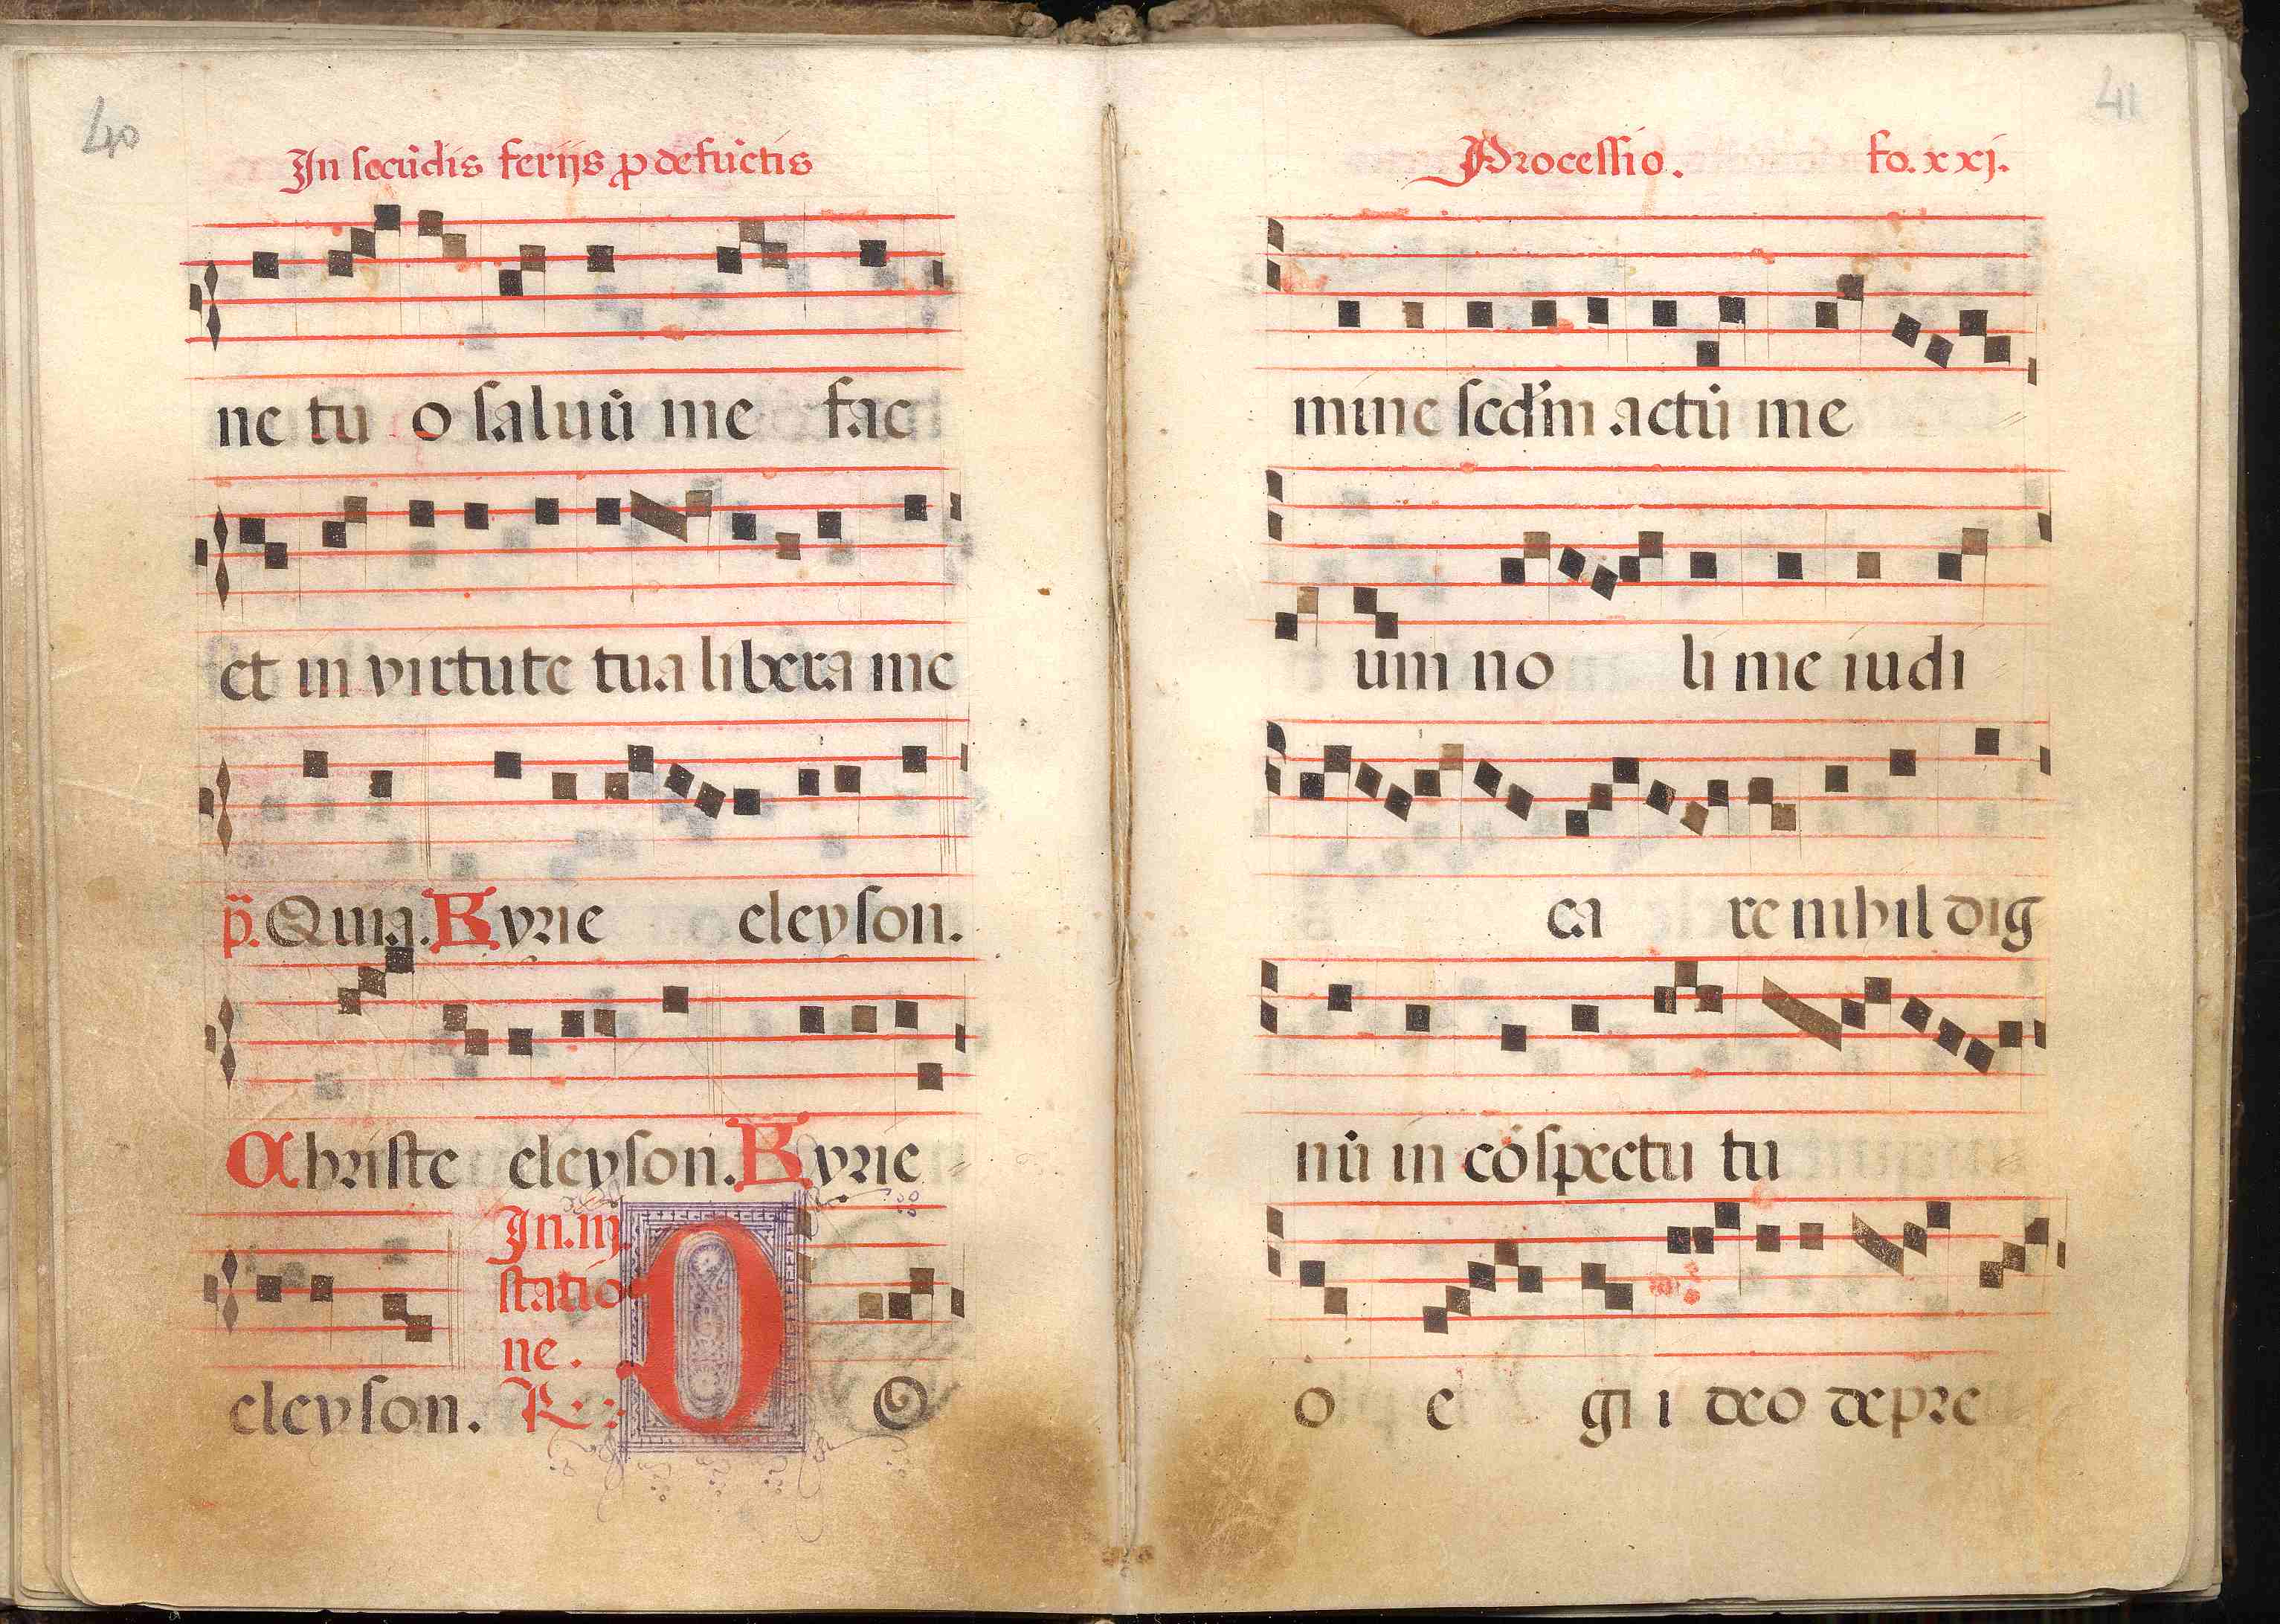 40
In secūdis ferijs ꝓ defūctis
ne tu o saluū me fac
et in virtute tua libera me
p̄. Quia. Kyrie eleyson.
Christe eleyson. Kyrie
In .iij.
statio
ne.
eleyson. R. D O
41
Processio. fo. xxj.
mine scd'm actū me
um no li me iudi
ca re nihil dig
nū in cōspectu tu
o e gi i deo depre